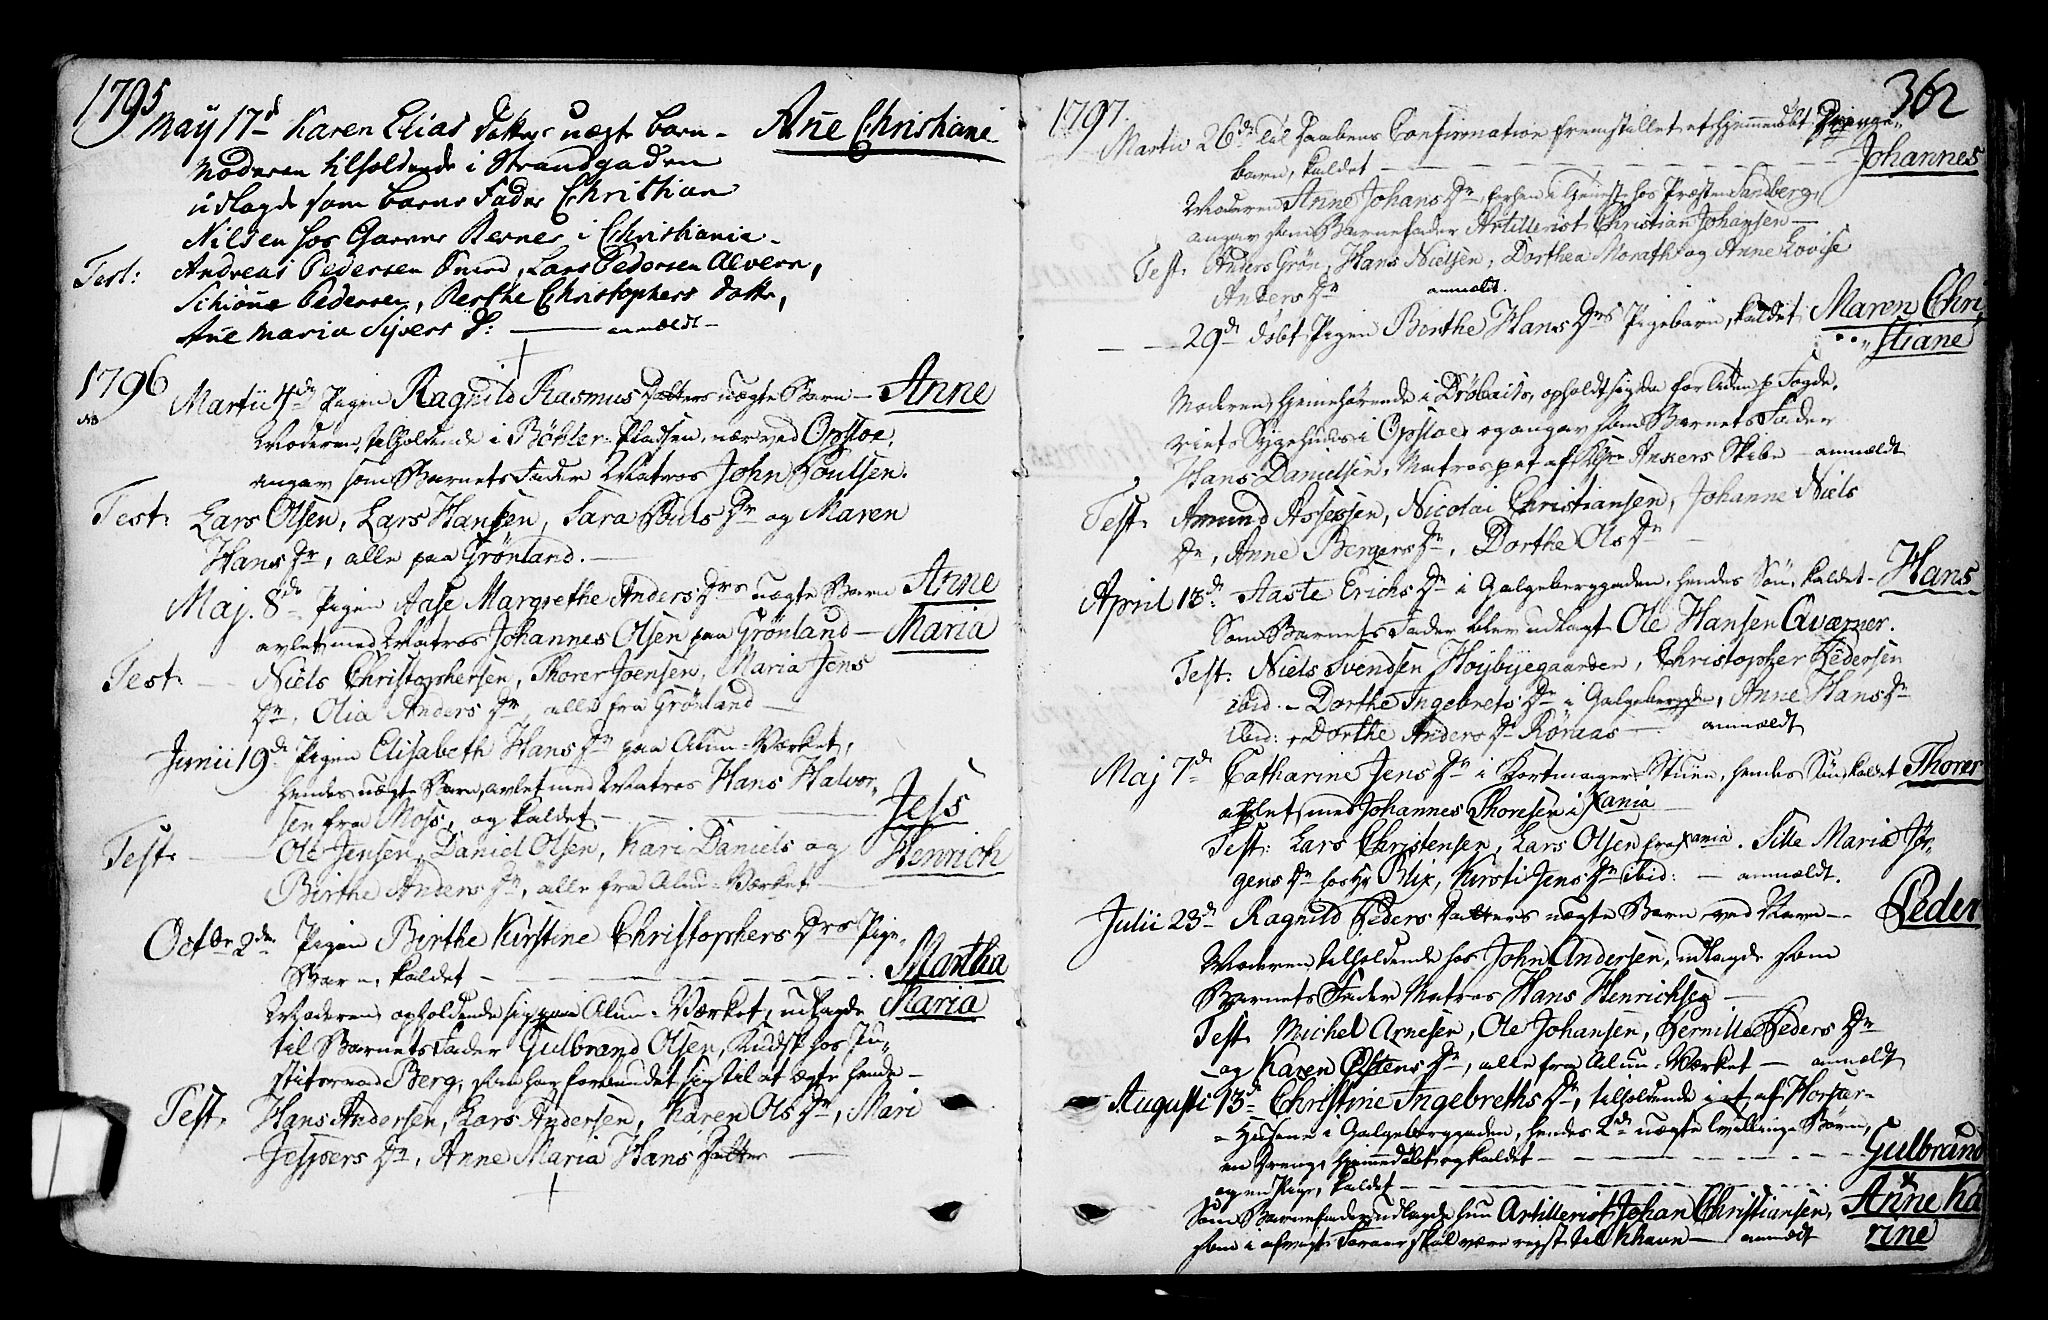 1795
May 17d Karen Elias datters uægte barn - Ane Christiane
Moderen tilholdende i Strandgaden
udlagde som barne Fader Christian
Nilsen hos Garver Berner i Christiania -
Test: Andreas Pedersen Smed, Lars Pedersen Alvern,
Schiöne Pedersen, Berthe Christophers datte,
Ane Maria Sivers D: anmældt -
1796
NB
Martii 4de Pigen Ragnild Rasmus Datters uægte Barn - Anne
Moderen, tilholdende i Böhler-Pladsen, nær ved Opsloe,
angav som Barnets Fader Matros John Poulsen.
Test: Lars Olsen, Lars Hansen, Sara Pouls Dr og Maren
Hans Dr, alle paa Grönland. -
Maj. 8de Pigen Aase Margrethe Anders Drs uægte Barn Anne
avlet med Matros Johannes Olsen paa Grönland - Maria
Test. - Niels Christophersen, Thorer Joensen, Maria Jens
Dr, Olia Anders Dr, alle fra Grönland -
Junii 19de Pigen Elisabeth Hans Dr paa Alun-Værket,
hendes uægte Barn, avlet med Matros Hans Halvor-
sen fra Moss, og kaldet - Jess
Test. - Ole Jensen, Daniel Olsen, Kari Daniels og Henrich
Birthe Anders Dr, alle fra Alun-Værket -
Octbr 2den Pigen Birthe Kirstine Christophers Drs Pige-
Barn, kaldet - Martha
Moderen opholdende sig paa Alun-Værket, udlagde Maria
til Barnets Fader Gulbrand Olsen, Kudsk hos Ju-
stitsraad Berg, som har forbundet sig til at ægte hende -
Test. Hans Andersen, Lars Andersen, Karen Ols Dr, Mari
Jespers Dr, Anne Maria Hans Datter -
362
1797.
Martii 26de til Daabens Confirmation fremstillet et hjemmedöbt Drenge-
barn, kaldet - Johannes
Moderen Anne Johans Dr, forhen i tjeneste hos Præsten Sandberg,
angav som Barnefader Artillerist Christian Johansen -
Test. Anders Grön, Hans Nielsen, Dorthea Morath og Anne Lovise
Anders Dr anmældt.
- - 29de döbt Pigen Birthe Hans Drs Pigebarn, kaldet Maren Chri-
stiane
Moderen, hjemehörende i Dröbak, opholdt sig da forleden p Fogde-
riets Sygehuus i Opsloe, og angav som Barnets Fader
Hans Danielsen, Matros pat af Ankers Skibe - anmældt
Test. Amund Assessen, Nicolai Christiansen, Johanne Niels
Dr, Anne Bergers Dr, Dorthe Ols Dr -
April 13de Aaste Erichs Dr i Galgeberggaden, hendes Sön, kaldet - Hans
Som Barnets Fader blev udlagt Ole Hansen Qværner.
Test. Niels Svendsen Höybyegaarden, Christopher Pedersen
ibid. - Dorthe Ingebrets Dr i Galgebergg, Anne Hans Dr
ibid: Dorthe Anders Dr Röraas - anmældt
Maj 7de Catharine Jens Dr i Kortmager-Stuen, hendes Sön kaldet Thorer
aflet med Johannes Thoresen i Xania -
Test: Lars Christensen, Lars Olsen fra Xania. Sille Maria Jör-
gens Dr hos Hr Blix, Kirsti Jens Dr ibid: - anmældt.
Julii 23de Ragnild Peders Datters uægte Barn ved Navn - Peder
Moderen tilholdende hos John Andersen, udlagde som
Barnets Fader Matros Hans Henrichsen -
Test. Michel Arnesen, Ole Johansen, Pernille Peders Dr
og Karen Östens Dr, alle fra Alun-Værket - anmældt
Augusti 13de Christine Ingebreths Dr, tilholdende i et af Horster-
Husene i Galgeberggaden, hendes 2de uægte tvillinge Börn,
en Dreng, hjemmedöbt og kaldet - Gulbrand
og en Pige, kaldet - Anne Ka
Som Barnefader udlagde hun Artillerist Johan Christiansen, rine
som i afvigte Foraar skal være reist til Khavn - anmældt